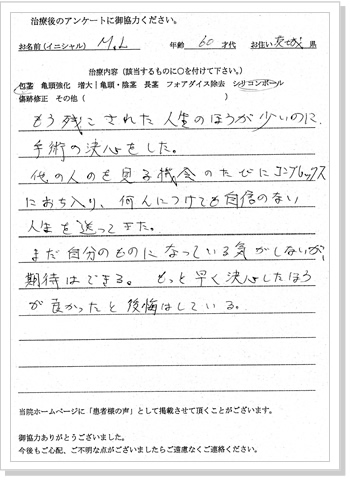 治療後のアンケートに御協力ください。
お名前（イニシャル） M.L 年齢 60 才代 お住い 茨城 県
治療内容（該当するものに○を付けて下さい。）
包茎 亀頭強化 増大｜亀頭・陰茎 長茎 フォアダイス除去 シリコンボール
傷跡修正 その他（ ）
もう残こされた人生のほうが少いのに、
手術の決心をした。
他の人のを見る機会のたびにコンプレックス
におち入り、何んにつけても自信のない
人生を送ってきた。
まだ自分のものになっている気がしないが、
期待はできる。 もっと早く決心したほう
が良かったと後悔はしている。
当院ホームページに「患者様の声」として掲載させて頂くことがございます。
御協力ありがとうございました。
今後もご心配、ご不明な点がございましたらご遠慮なくご連絡ください。